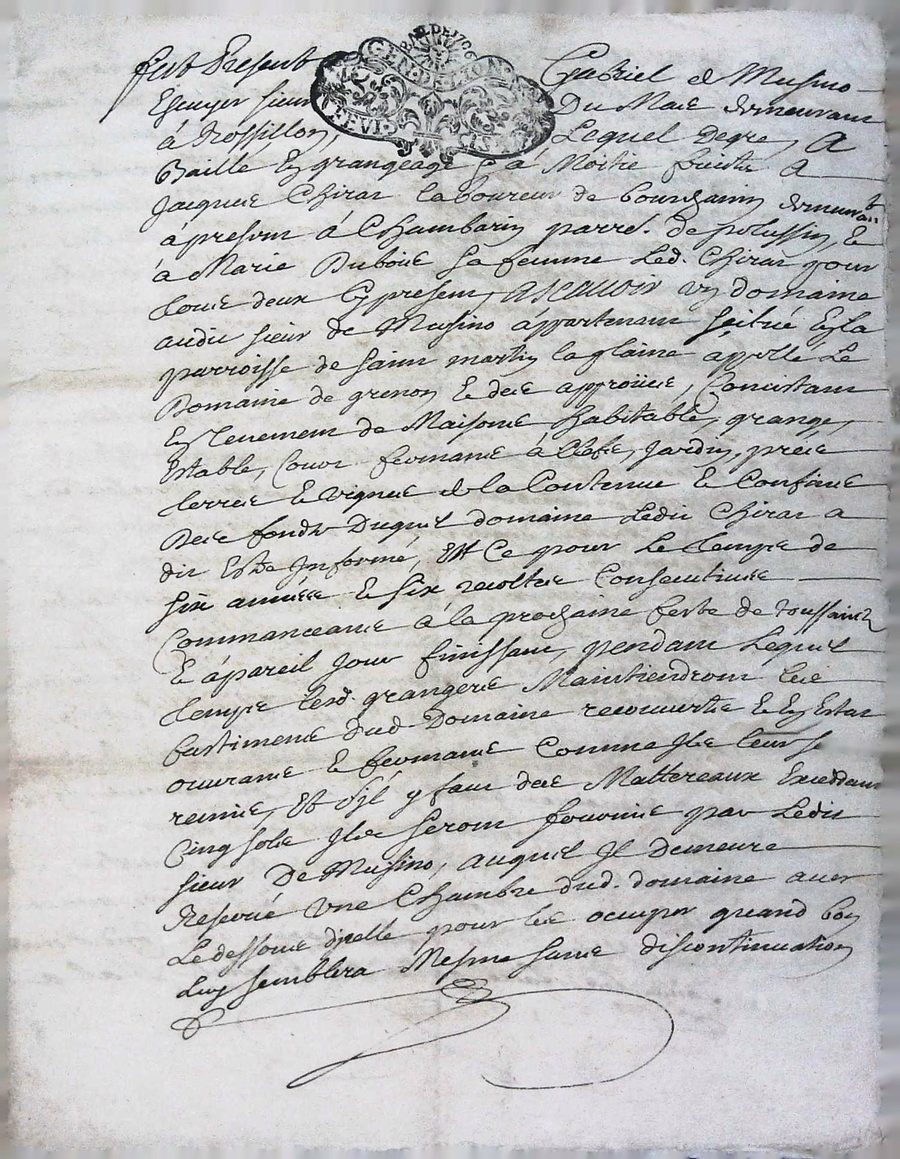 BAIL DE 1706
GEN. DE LYON
fust Present Gabriel de Musino
Escuyer sieur Du Mare demeurant
à Rossillon, Lequel Degre, A
Baillé En grangeage Et à Moitié fruictz A
Jacques Chirar laboureur de bourgoin demeurant
àpresent à Chambarin parre. de polussin, Et
à Marie Duboue Sa femme Led. Chirar pour
toue deux Cy present, ASCAVOIR un domaine
audit sieur de Musino àppartenant scitué En la
parroisse de saint martin la plaine appellé Le
Domaine de grenon Et des approüés, Concistant
En Tenement de Maisons habitable, grange,
Estable, Cour fermant à Clefz, Jardin, prés
terres Et vignes de la Contenue Et Confins
Des fondz Duquel domaine Ledit Chirar a
dit Estre Informé, Et Ce pour Le temps de
Six années Et Six recoltes Consecutives
Commanceant à la prochaine feste de toussaintz
Et àpareil Jour finissant, pendant Lequel
temps Lesd. grangers Maintiendront les
bastiments dud. Domaine recouverts Et En Estat
ouvrant Et fermant Comme Ils leurs
remis, Et S'il y faut des Mattereaux Exceddant
Cinq solz Ilz Seront fournis par Ledit
sieur De Musino, auquel Il Demeure
Reservé une Chambre dud. domaine avec
Le dessoue d'icelle pour les occuper quand bon
Luy semblera Mesme sans discontinuation